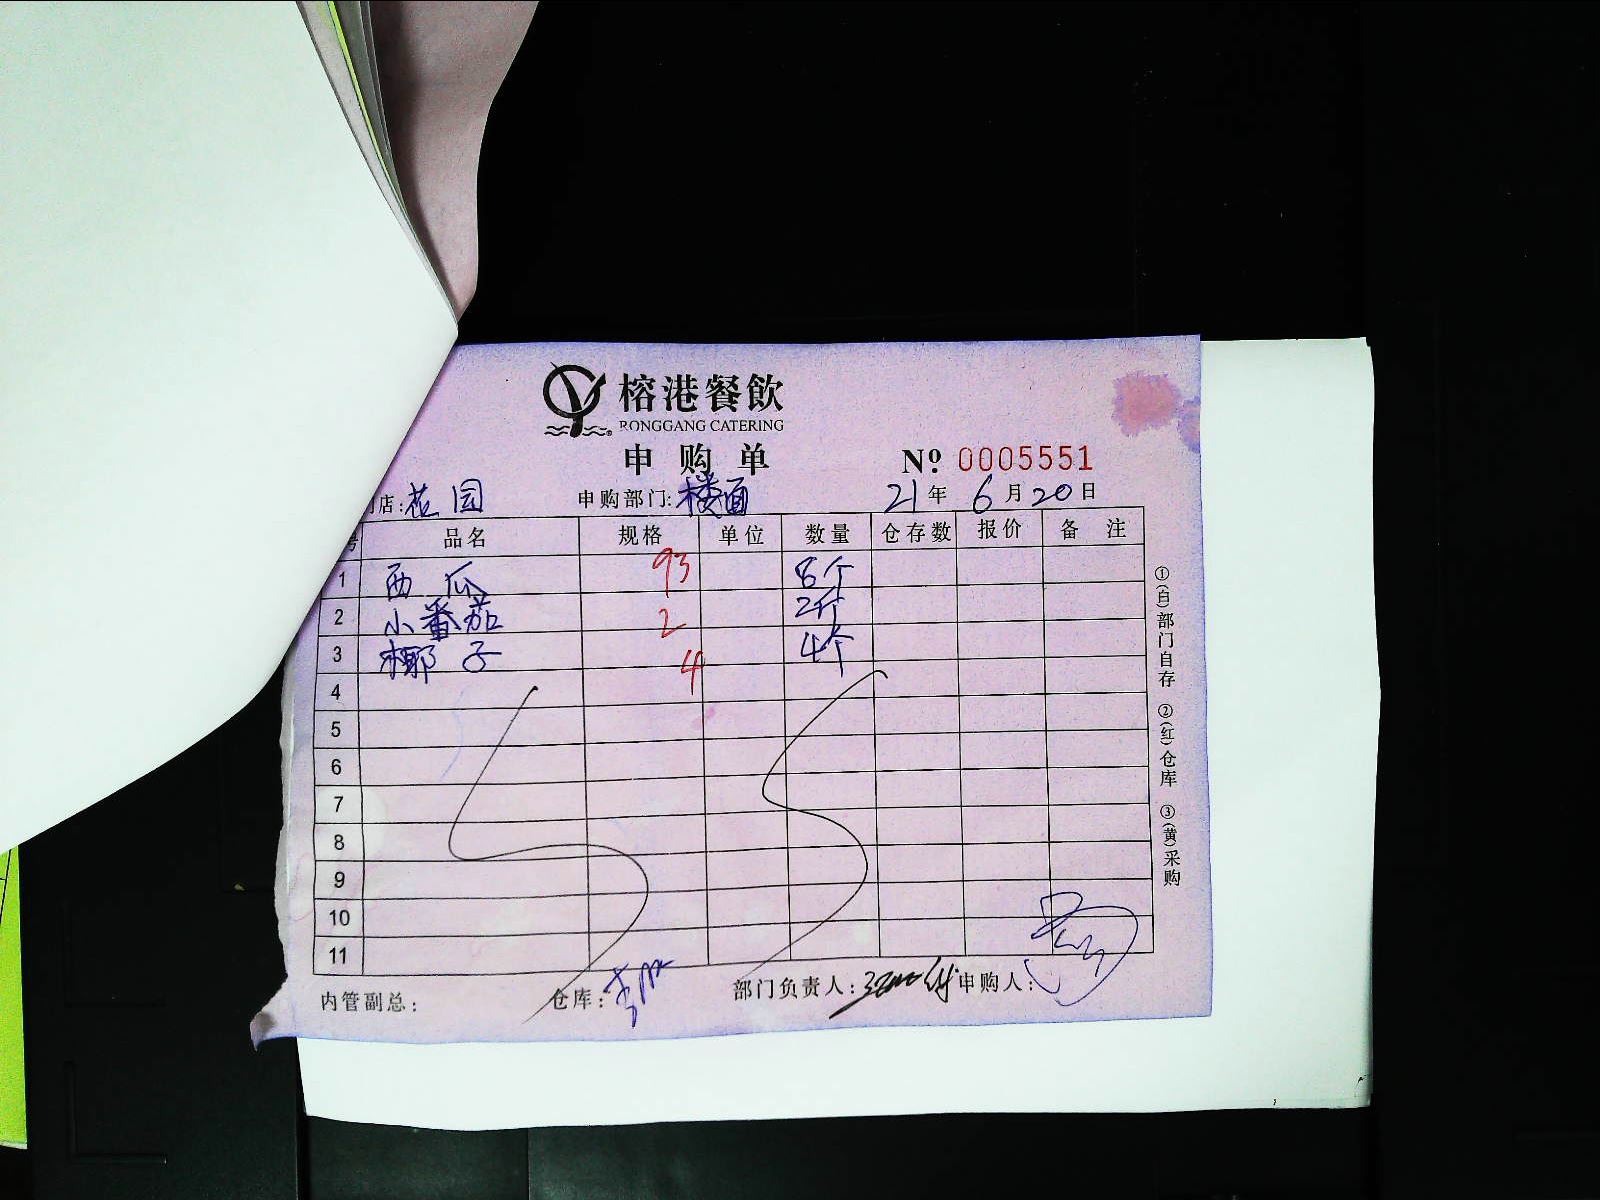 榕港餐飲
RONGGANG CATERING
申购单
Nº 0005551
店: 花园 申购部门: 楼面 21年 6月20日
号 品名 规格 单位 数量 仓存数 报价 备注
1 西瓜 93 8个
2 小番茄 2 2斤
3 椰子 4 4个
4
5
6
7
8
9
10
11
内管副总: 仓库: 部门负责人: 申购人:
①(白)部门自存 ②(红)仓库 ③(黄)采购